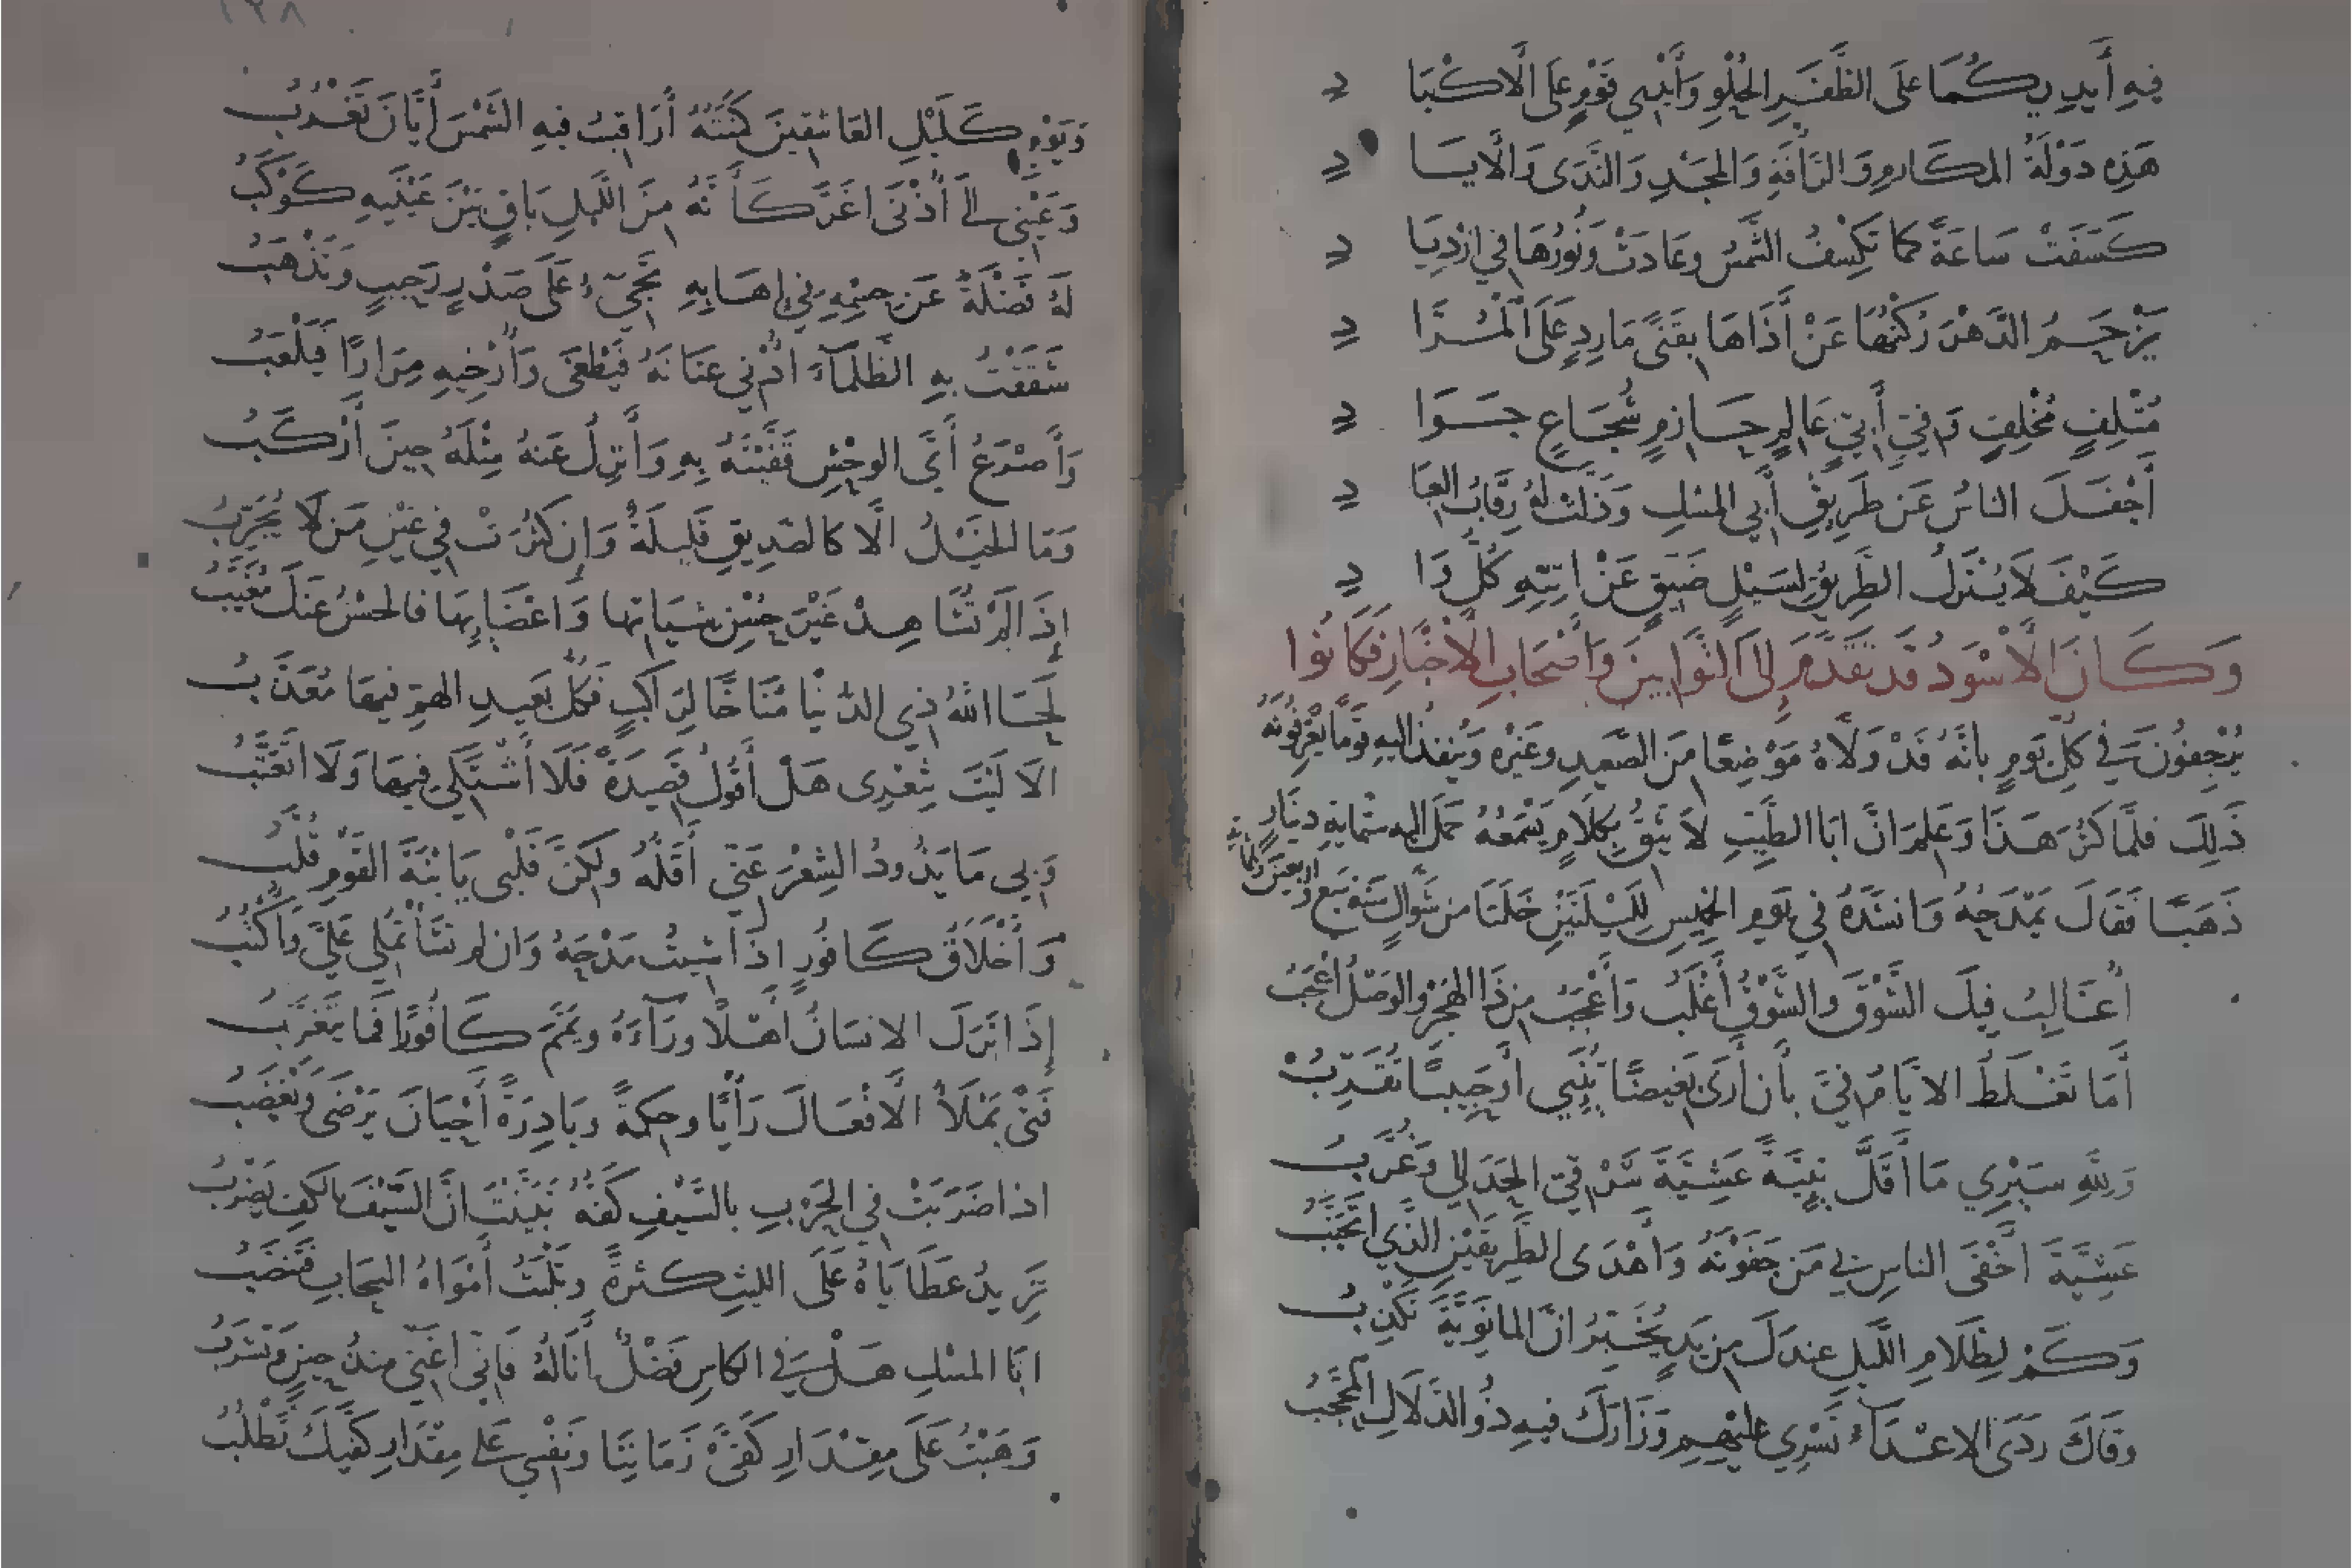 فِيهِ أَيْدِيكُمَا عَلَى الظَّفَرِ الحُلْوِ وَأَيْدِي قَوْمٍ عَلَى الْأَكْبَا دِ
هَذِهِ دَوْلَةُ المَكَارِمِ وَالرَّأفَةِ وَالمَجْدِ وَالنَّدَى وَالْأَيَا دِ
كَسَفَتْ سَاعَةً كَمَا تَكْسِفُ الشَّمْسُ وَعَادَتْ وَنُورُهَا فِي ازْدِيَا دِ
يَزْحَمُ الدَّهْرَ رُكْنُهَا عَنْ أَذَاهَا بِفَتًى مَارِدٍ عَلَى الْمُرَّا دِ
مُتْلِفٍ مُخْلِفٍ وَفِيٍّ أَبِيٍّ عَالِمٍ حَازِمٍ شُجَاعٍ جَوَا دِ
أَجْفَلَ الناسُ عَن طَرِيقِ أَبِي المِسْكِ وَذَلَّتْ لَهُ رِقَابُ العِبَا دِ
كَيْفَ لَا يُتْرَكُ الطَّرِيقُ لِسَيْلٍ ضَيِّقٍ عَنْ اتِيِّهِ كُلُّ وَا دِ
وَكَانَ الْأَسْوَدُ قَد تَقَدَّمَ إِلَى النَّوَّابِينَ وَأَصْحَابِ الْأَخْبَارِ فَكَانُوا
يُرْجِفُونَ فِي كُلِّ يَومٍ بِانَّهُ قَدْ وَلَّاهُ مَوْضِعًا مِنَ الصَّعِيدِ وغَيْرِه وَيُنفِذُ اليهِ قَومًا يُعَرِّفُونَهُ
ذَلِكَ فلمَّا كَثُرَ هَذَا وَعَلِمَ انَّ ابَا الطَّيِّبِ لَا يَثِقُ بِكَلَامٍ يَسْمَعُهُ حَمَلَ اليهِ ستمايةِ دِينَارٍ
ذَهَبًا فَقَالَ يَمْدَحُهُ وَانشَدَهُ فِي يَومِ الخَمِيسِ لِلَيْلَتَيْنِ خَلَتَا مِن شَوَّالٍ سَنَةَ سَبْعٍ وَاربعينَ وثلثمائة
أُغَالِبُ فِيكَ الشَّوْقَ وَالشَّوْقُ أَغْلَبُ وَأَعْجَبُ مِن ذَا الهَجْرِ وَالوَصْلُ أَعْجَبُ
أَمَا تَغْلَطُ الايَّامُ فِيَّ بِأَن أَرَى بَغِيضًا تُنَبِي أَو حَبِيبًا تُقَرِّبُ
وَلِلَّهِ سَيْرِي مَا أَقَلَّ تِئِيَّةً عَشِيَّةَ شَرْقِيَّ الحَدَالِي وَغُرَّبُ
عَشِيَّةَ أَحْفَى الناسِ بِي مَن جَفَوْتُهُ وَأَهْدَى الطَّرِيقَيْنِ الَّذِي اتَجَنَّبُ
وَكَمْ لِظَلَامِ اللَّيلِ عِندَكَ مِن يَدٍ تُخَبِّرُ انَّ المَانَوِيَّةَ تَكْذِبُ
وَقَاكَ رَدَى الاعْدَآءِ تَسْرِي عَلَيْهِمِ وَزَارَكَ فِيهِ ذُو الدَّلَالِ المُحَجَّبُ
وَيَوْمٍ كَلَيْلِ العَاشِقِينَ كَمَنْتُهُ أُرَاقِبُ فِيهِ الشَّمْسَ أَيَّانَ تَغْرُبُ
وَعَيْنِي إِلَى أُذْنَى اغَرَّ كَأَنَّهُ مِنَ اللَّيلِ بَاقٍ بَيْنَ عَيْنَيهِ كَوْكَبُ
لَهُ فَضْلَةٌ عَن جِسْمِهِ فِي إِهَابِهِ تَجِيءُ عَلَى صَدْرٍ رَحِيبٍ وَتَذْهَبُ
شَقَقْتُ بِهِ الظَّلمَآءَ ادْنِي عِنَانَهُ فَيَطْغَى وَأُرْخِيهِ مِرَارًا فَيَلْعَبُ
وَأَصْرَعُ أَيَّ الوَحْشِ قَفَّيْتُهُ بِهِ وَأَنزِلُ عَنهُ مِثْلَهُ حِينَ أَرْكَبُ
وَمَا الخَيْلُ الَّا كالصَّدِيقِ قَلِيلَةٌ وَإِن كَثُرَتْ فِي عَيْنِ مَن لَا يُجَرِّبُ
إِذَا لَمْ تُشَاهِدْ غَيْرَ حُسْنِ شِيَاتِهَا وَاعْضَايِهَا فَالحسْنُ عَنكَ مُغَيَّبُ
لَحَا اللهُ ذِي الدُّنْيَا مُنَاخًا لِرَاكِبٍ فَكُلُّ بَعِيدِ الهَمِّ فِيهَا مُعَذَّبُ
الَا لَيْتَ شِعْرِى هَلْ أَقُولُ قَصِيدَةً فَلَا أَشْتَكِي فِيهَا وَلَا اتَعَتَّبُ
وَبِي مَا يَذُودُ الشِعْرَ عَنِّي أَقَلُّهُ وَلَكِنَّ قَلْبِي يَا بْنَةَ القَوْمِ قُلَّبُ
وَأَخْلَاقُ كَافُورٍ إِذَا شِيتُ مَدْحَهُ وَان لم تَشَأْ تُمْلِي عَلَيَّ وَأَكْتُبُ
إِذَا تَرَكَ الانسَانُ أَهْلًا ورَآءَهُ وَيَمَّمَ كَافُورًا فَمَا يَتَغَرَّبُ
فَتًى يَمْلَأُ الْأَفْعَالَ رَأْيًا وَحِكمَةً وبَادِرَةً أَحْيَانَ يَرْضَى وَيَغْضَبُ
اذا ضَرَبَتْ فِي الحَرْبِ بِالسَّيْفِ كَفُّهُ تَبَيَّنْتَ انَّ السَّيْفَ بِالكَفِّ يَضْرِبُ
تَزِيدُ عَطَايَاهُ عَلَى اللبثِ كَثرَةً وَتَلْبَثُ أَمْوَاهُ السَّحَابِ فَتَنضُبُ
ابَا المسْكِ هَلْ فِي الكاسِ فَضْلٌ أَنَالُهُ فَانِّي اغَنِّي مُنذُ حِينٍ وَتَشْرَبُ
وَهَبْتَ عَلَى مِقْدَارِ كَفَّيْ زَمَانِنَا وَنَفْسِي عَلى مِقْدَارِ كَفَّيْكَ تَطْلُبُ